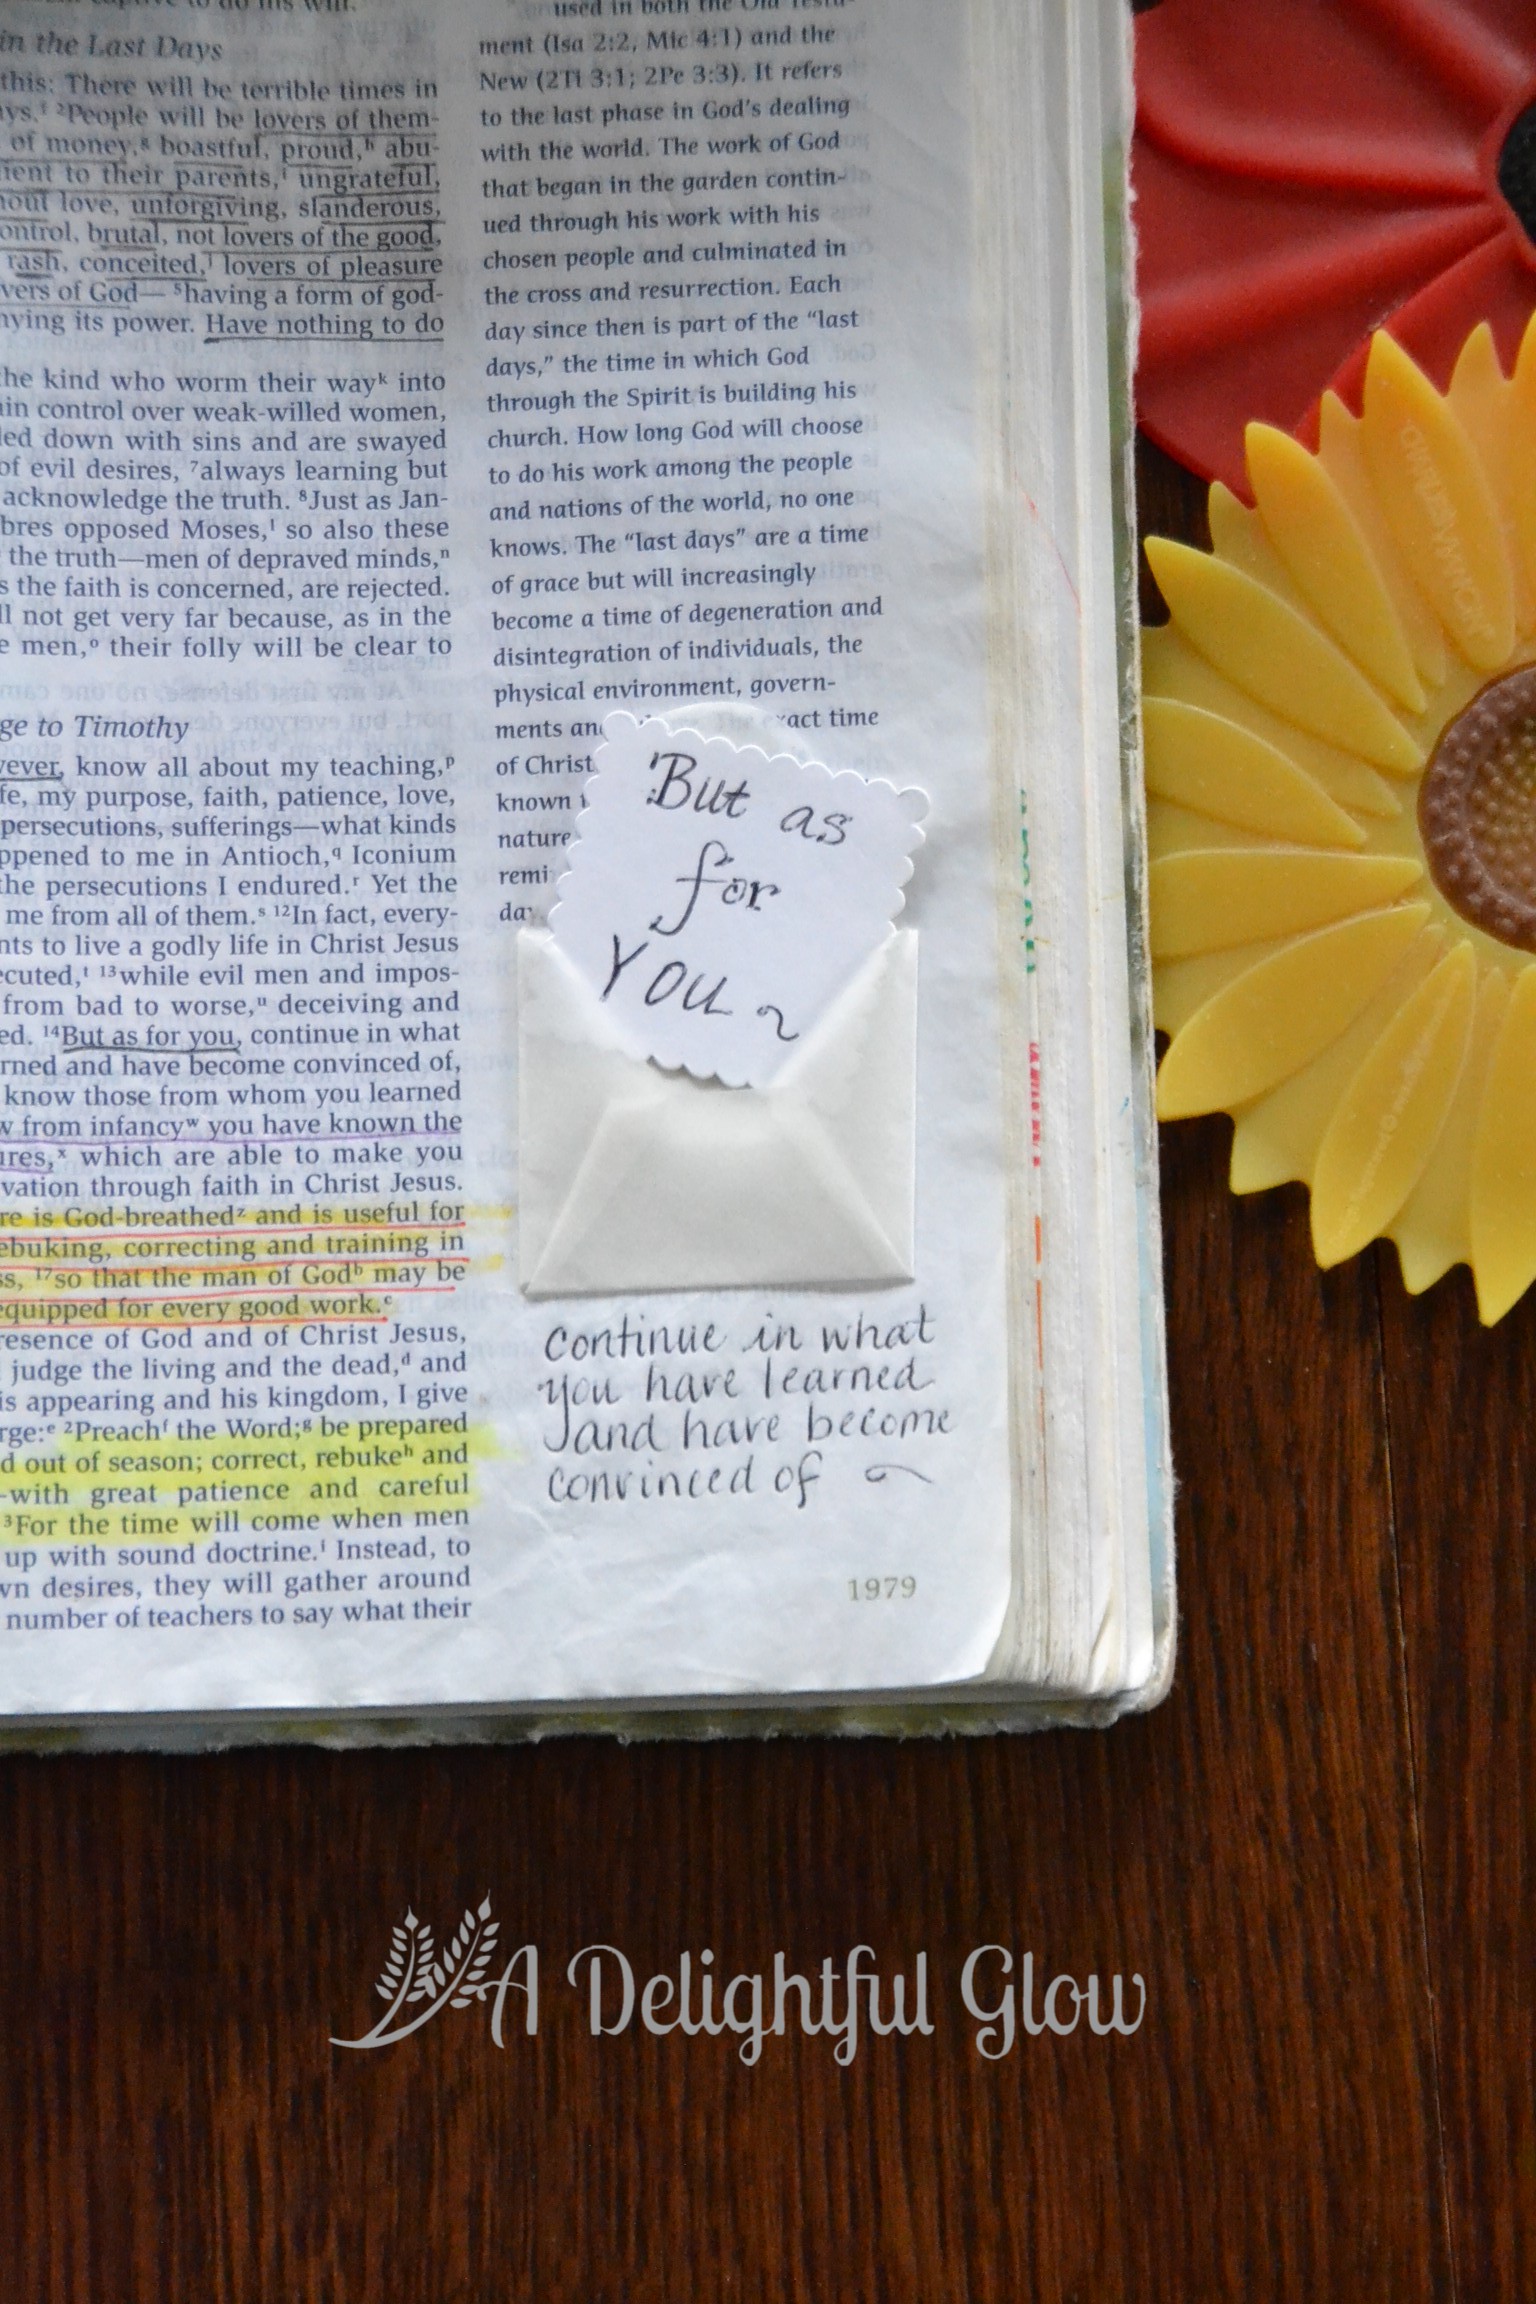 in the Last Days
this: There will be terrible times in
ys.ᶠ ²People will be lovers of them-
of money,ᵍ boastful, proud,ʰ abu-
ient to their parents,ⁱ ungrateful,
out love, unforgiving, slanderous,
ontrol, brutal, not lovers of the good,
rash, conceited,ʲ lovers of pleasure
vers of God— ⁵having a form of god-
nying its power. Have nothing to do
he kind who worm their wayᵏ into
in control over weak-willed women,
led down with sins and are swayed
of evil desires, ⁷always learning but
acknowledge the truth. ⁸Just as Jan-
bres opposed Moses,ˡ so also these
the truth—men of depraved minds,ⁿ
s the faith is concerned, are rejected.
ll not get very far because, as in the
e men,ᵒ their folly will be clear to
ge to Timothy
vever, know all about my teaching,ᵖ
fe, my purpose, faith, patience, love,
persecutions, sufferings—what kinds
ppened to me in Antioch,q Iconium
the persecutions I endured.ʳ Yet the
me from all of them.ˢ ¹²In fact, every-
nts to live a godly life in Christ Jesus
ecuted,ᵗ ¹³while evil men and impos-
from bad to worse,ᵘ deceiving and
ed. ¹⁴But as for you, continue in what
rned and have become convinced of,
know those from whom you learned
w from infancyʷ you have known the
ures,ˣ which are able to make you
vation through faith in Christ Jesus.
re is God-breathedᶻ and is useful for
ebuking, correcting and training in
ss, ¹⁷so that the man of Godᵇ may be
equipped for every good work.ᶜ
resence of God and of Christ Jesus,
judge the living and the dead,ᵈ and
is appearing and his kingdom, I give
rge:ᵉ ²Preachᶠ the Word;ᵍ be prepared
d out of season; correct, rebukeʰ and
-with great patience and careful
³For the time will come when men
up with sound doctrine.ⁱ Instead, to
wn desires, they will gather around
number of teachers to say what their
used in both the Old Testa-
ment (Isa 2:2, Mic 4:1) and the
New (2Ti 3:1; 2Pe 3:3). It refers
to the last phase in God's dealing
with the world. The work of God
that began in the garden contin-
ued through his work with his
chosen people and culminated in
the cross and resurrection. Each
day since then is part of the “last
days,” the time in which God
through the Spirit is building his
church. How long God will choose
to do his work among the people
and nations of the world, no one
knows. The “last days” are a time
of grace but will increasingly
become a time of degeneration and
disintegration of individuals, the
physical environment, govern-
ments an act time
of Christ
known
nature
remi
da
But as
for
YOU
continue in what
you have learned
and have become
convinced of
1979
A Delightful Glow